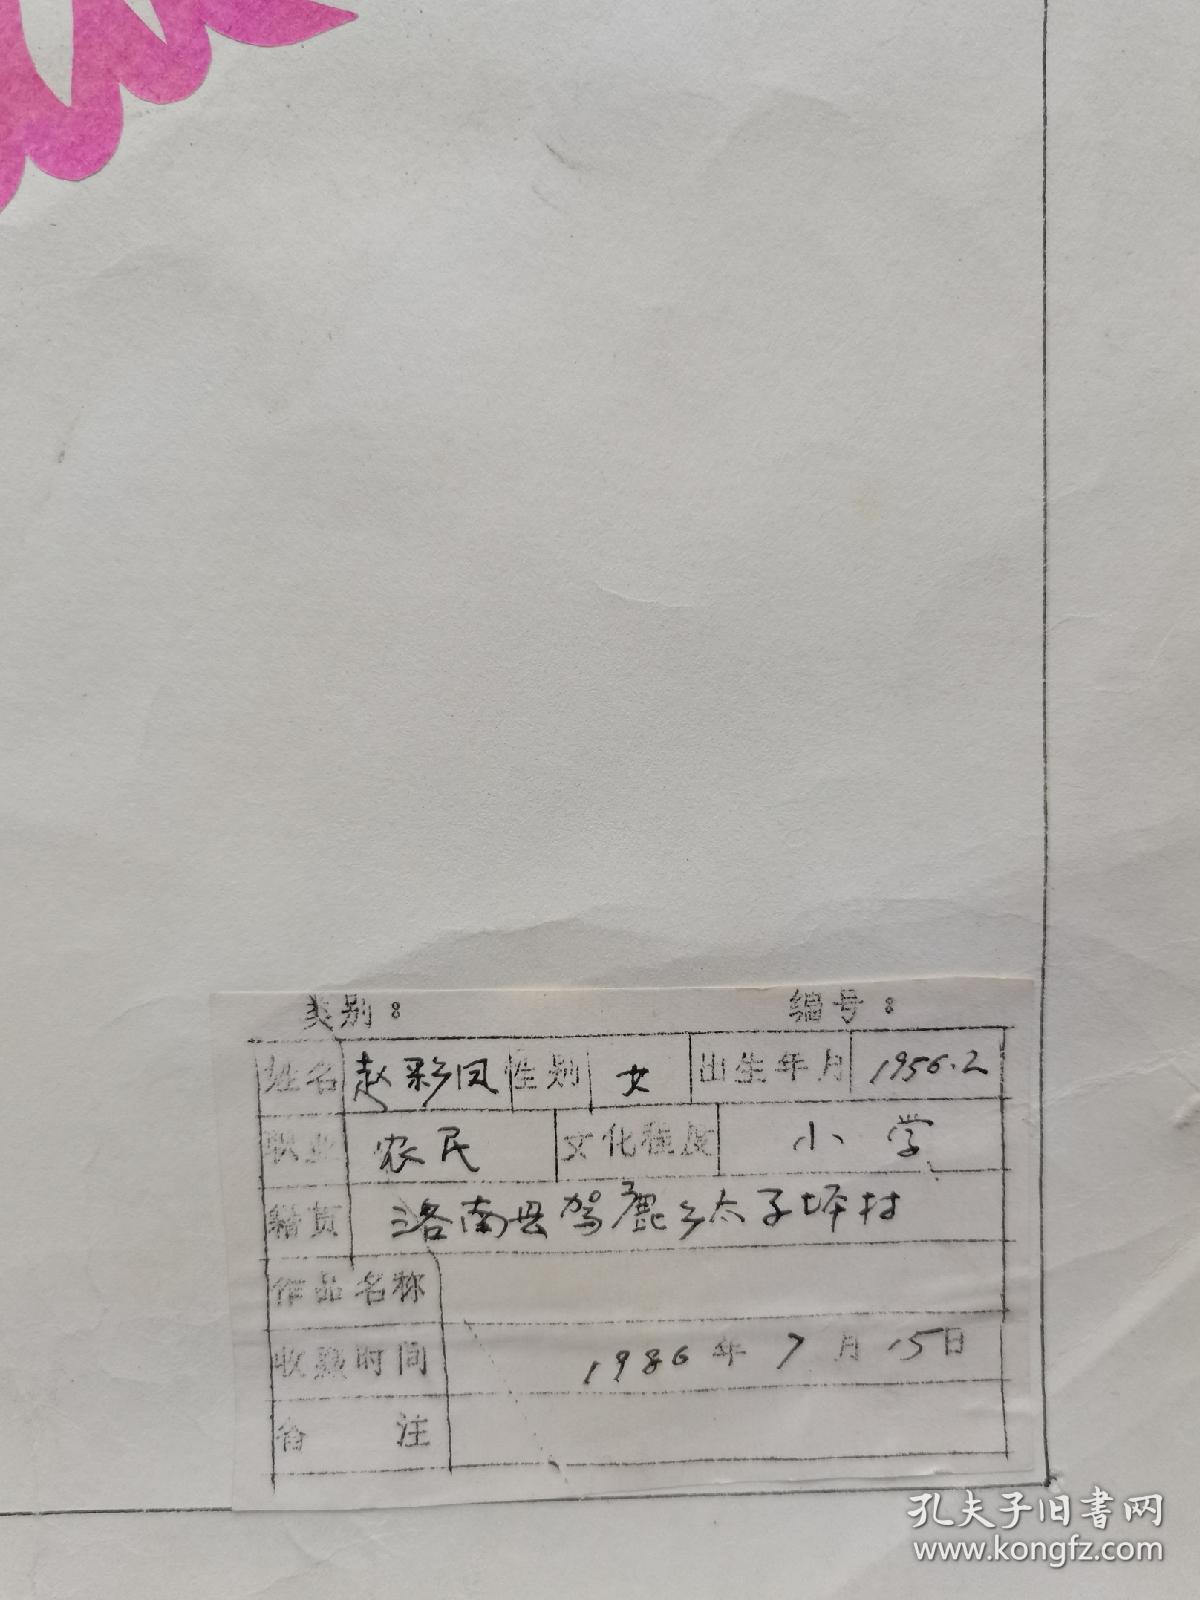 类别： 编号：
姓名 赵彩凤 性别 女 出生年月 1956.2
职业 农民 文化程度 小学
籍贯 洛南县驾鹿乡太子坪村
作品名称
收藏时间 1986年7月15日
备注
孔夫子旧书网
www.kongfz.com